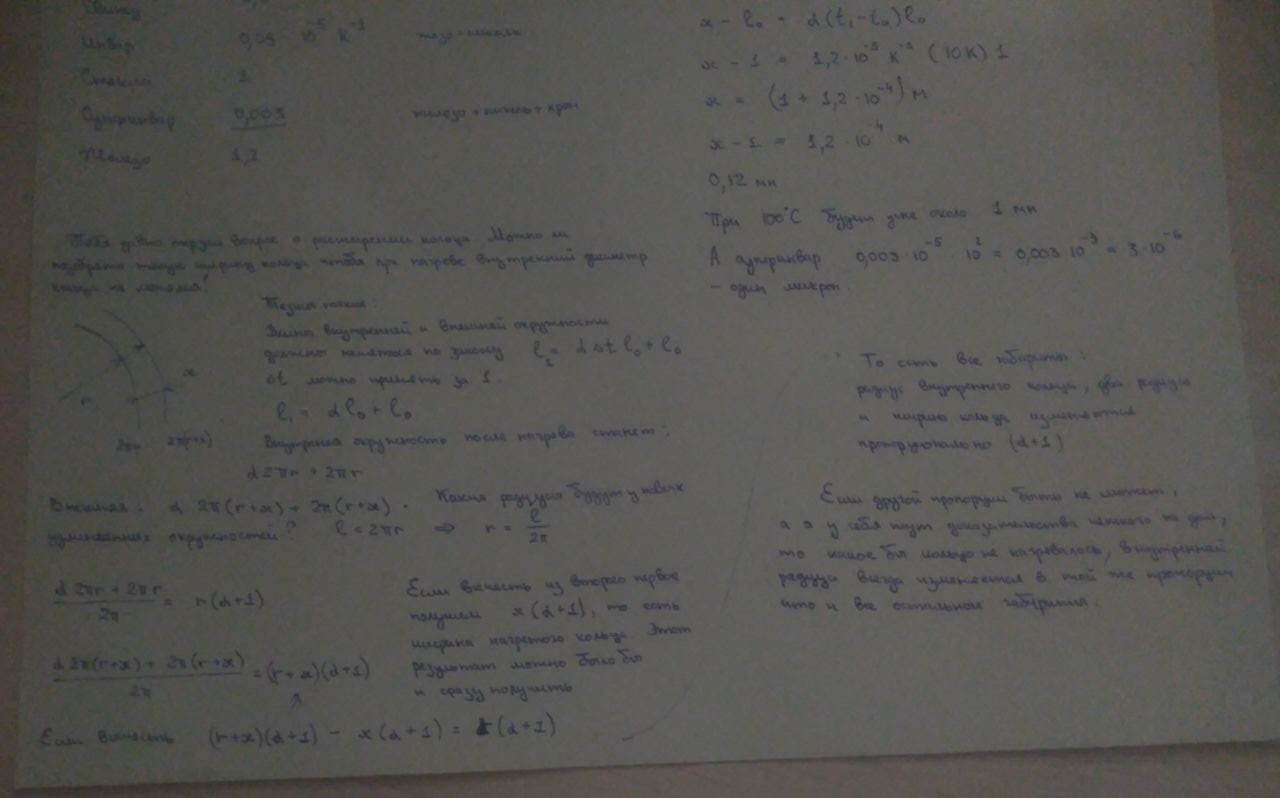 Инвар 0,09 · 10⁻⁵ K⁻¹
Стекло 1
Суперинвар 0,003 железо + никель + хром
Железо 1,2
Тебя давно терзал вопрос о расширении кольца. Можно ли
подобрать такую ширину кольца чтобы при нагреве внутренний диаметр
кольца не менялся?
Длина внутренней и внешней окружности
должны меняться по закону l₁ = α Δt l₀ + l₀
Δt можно принять за 1.
l₁ = αl₀ + l₀
r x
2πr 2π(r+x)
Внутрення окружность после нагрева станет:
α2πr + 2πr
Внешняя: α 2π(r+x) + 2π(r+x). Какие радиусы будут у новых
окружностей? l = 2πr ⇒ r = l/2π
(α 2πr + 2πr)/2π = r(α+1)
(α 2π(r+x) + 2π(r+x))/2π = (r+x)(α+1)
Если вычесть из второго первое
получим x(α+1), то есть
ширина нагретого кольца. Этот
результат можно было бы
и сразу получить
Если вычесть (r+x)(α+1) − x(α+1) = r(α+1)
x − l₀ = α(t₁−t₀)l₀
x − 1 = 1,2·10⁻⁵ K⁻¹ (10K) 1
x = (1 + 1,2·10⁻⁴) м
x − 1 = 1,2·10⁻⁴ м
0,12 мм
При 100°C будет уже около 1 мм
А суперинвар 0,003·10⁻⁵ 10² = 0,003·10⁻³ = 3·10⁻⁶
– один микрон
То есть все габариты:
радиус внутреннего кольца, два радиуса
и ширина кольца изменяются
пропорционально (α+1)
Если другой пропорции быть не может,
то какое бы кольцо не нагревалось, внутренний
радиус всегда изменяется в той же пропорции
что и все остальные габариты.